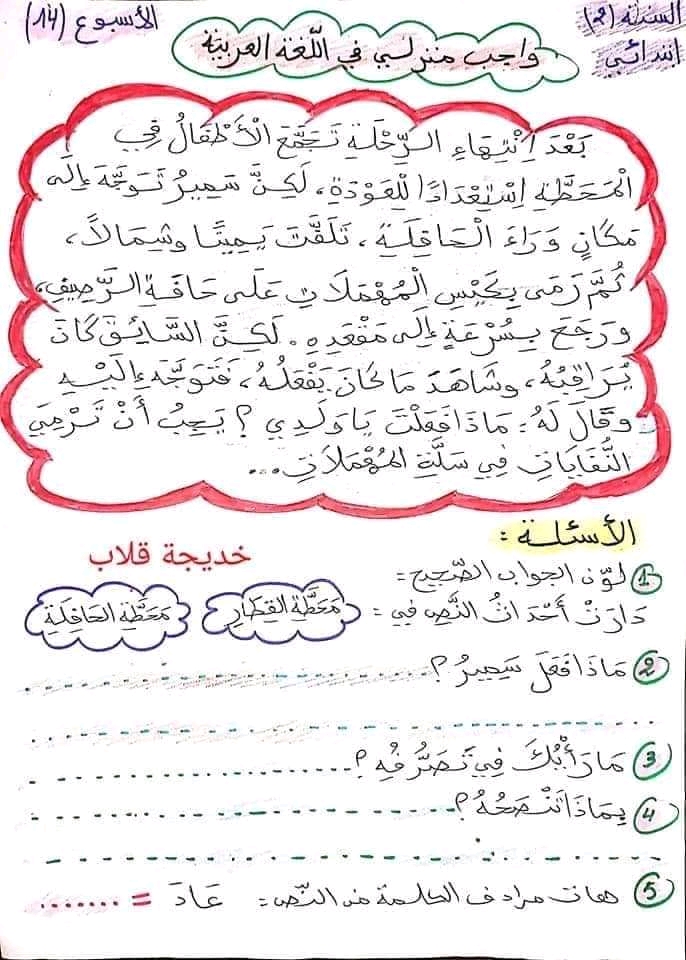 السنة (2) ابتدائي
الأسبوع (14)
واجب منزلي في اللّغة العربيّة
بَعْدَ اِنْتِهَاءِ الرِّحْلَةِ تَجَمَّعَ الْأَطْفَالُ فِي
الْمَحَطَّةِ اِسْتِعْدَادًا لِلْعَوْدَةِ، لَكِنَّ سَمِيرُ تَوَجَّهَ إِلَى
مَكَانٍ وَرَاءَ الْحَافِلَةِ، تَلَفَّتَ يَمِينًا وشِمَالاً،
ثُمَّ رَمَى بِكِيسِ الْمُهْمَلَاتِ عَلَى حَافَةِ الرَّصِيفِ،
وَرَجَعَ بِسُرْعَةٍ إِلَى مَقْعَدِهِ. لَكِنَّ السَّائِقَ كَانَ
يُرَاقِبُهُ، وشَاهَدَ مَا كَانَ يَفْعَلُهُ، فَتَوَجَّهَ إِلَيْهِ
وقَالَ لَهُ: مَاذَا فَعَلْتَ يَا وَلَدِي؟ يَجِبُ أَنْ تَرْمِيَ
النُّفَايَاتِ فِي سَلَّةِ المُهْمَلاَتِ...
الأسئلة:
خديجة قلاب
1 لوّن الجواب الصّحيح:
دَارَتْ أَحْدَاثُ النَّصِ في: مَحَطَّةِ القِطَارِ مَحَطَّةِ الحَافِلَةِ
2 مَاذَا فَعَلَ سَمِيرُ؟
3 مَا رَأْيُكَ فِي تَصَرُّفِهِ؟
4 بِمَاذَا تَنْصَحُهُ؟
5 هات مرادف الكلمة من النّص: عَادَ = .......